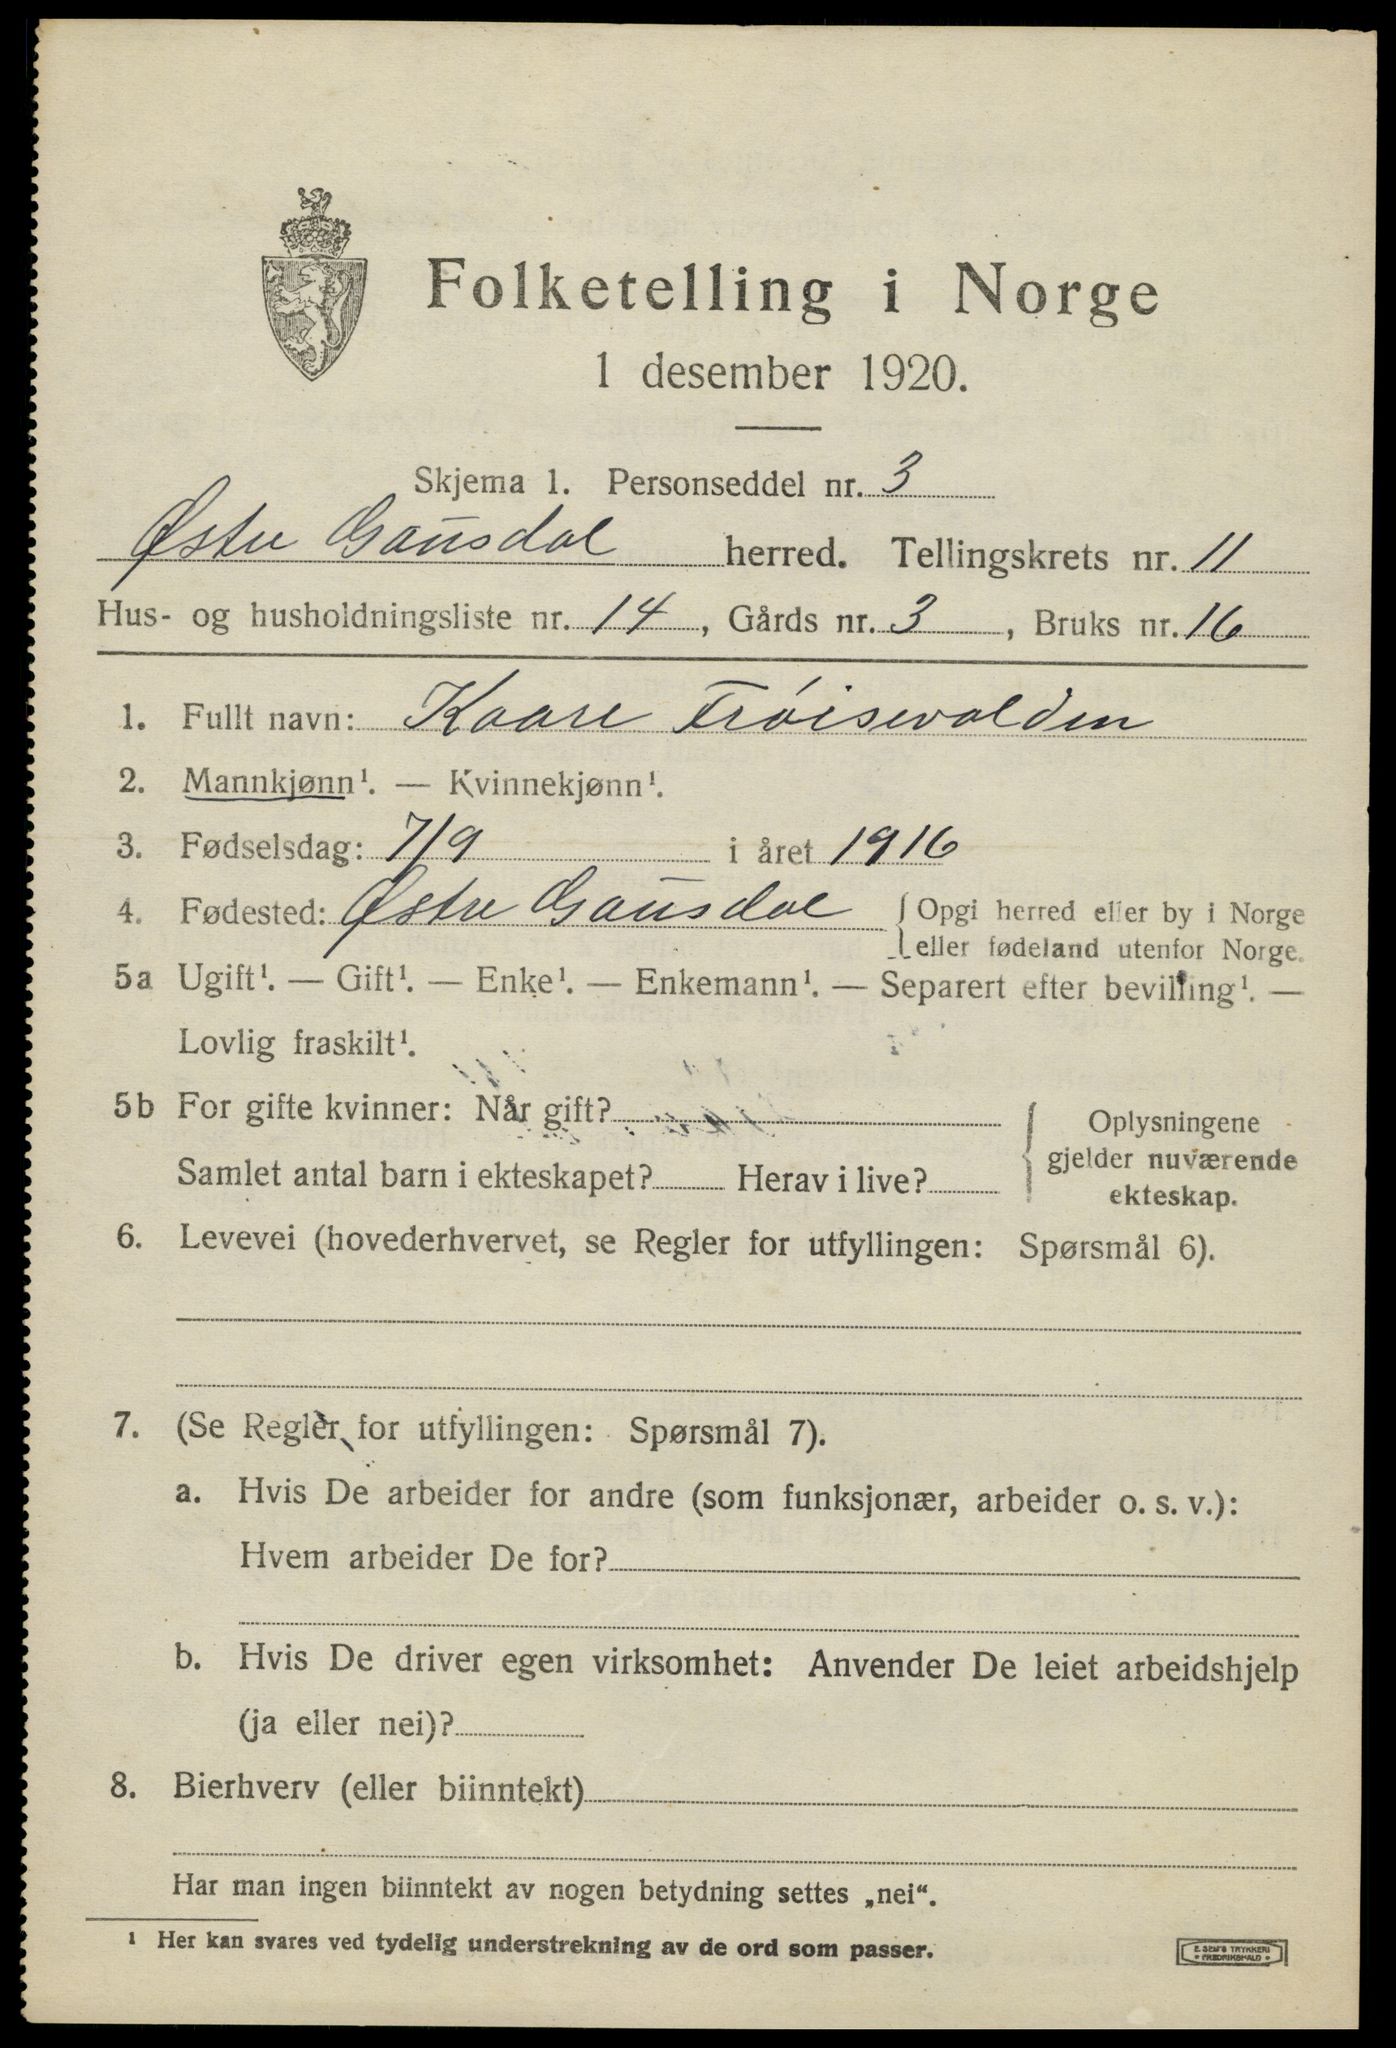 Folketelling i Norge
1 desember 1920.
Skjema 1. Personseddel nr. 3
Østre Gausdal herred. Tellingskrets nr. 11
Hus- og husholdningsliste nr. 14, Gårds nr. 3, Bruks nr. 16
1. Fullt navn: Kaare Frøisevolden
2. Mannkjønn¹. — Kvinnekjønn¹.
3. Fødselsdag: 7/9 i året 1916
4. Fødested: Østre Gausdal { Opgi herred eller by i Norge
eller fødeland utenfor Norge.
5a Ugift¹. — Gift¹. — Enke¹. — Enkemann¹. — Separert efter bevilling¹. —
Lovlig fraskilt¹.
5b For gifte kvinner: Når gift?
Samlet antal barn i ekteskapet? Herav i live?
Oplysningene
gjelder nuværende
ekteskap.
6. Levevei (hovederhvervet, se Regler for utfyllingen: Spørsmål 6).
7. (Se Regler for utfyllingen: Spørsmål 7).
a. Hvis De arbeider for andre (som funksjonær, arbeider o. s. v.):
Hvem arbeider De for?
b. Hvis De driver egen virksomhet: Anvender De leiet arbeidshjelp
(ja eller nei)?
8. Bierhverv (eller biinntekt)
Har man ingen biinntekt av nogen betydning settes „nei“.
¹ Her kan svares ved tydelig understrekning av de ord som passer.
E. SEM'S TRYKKERI
FREDRIKSHALD